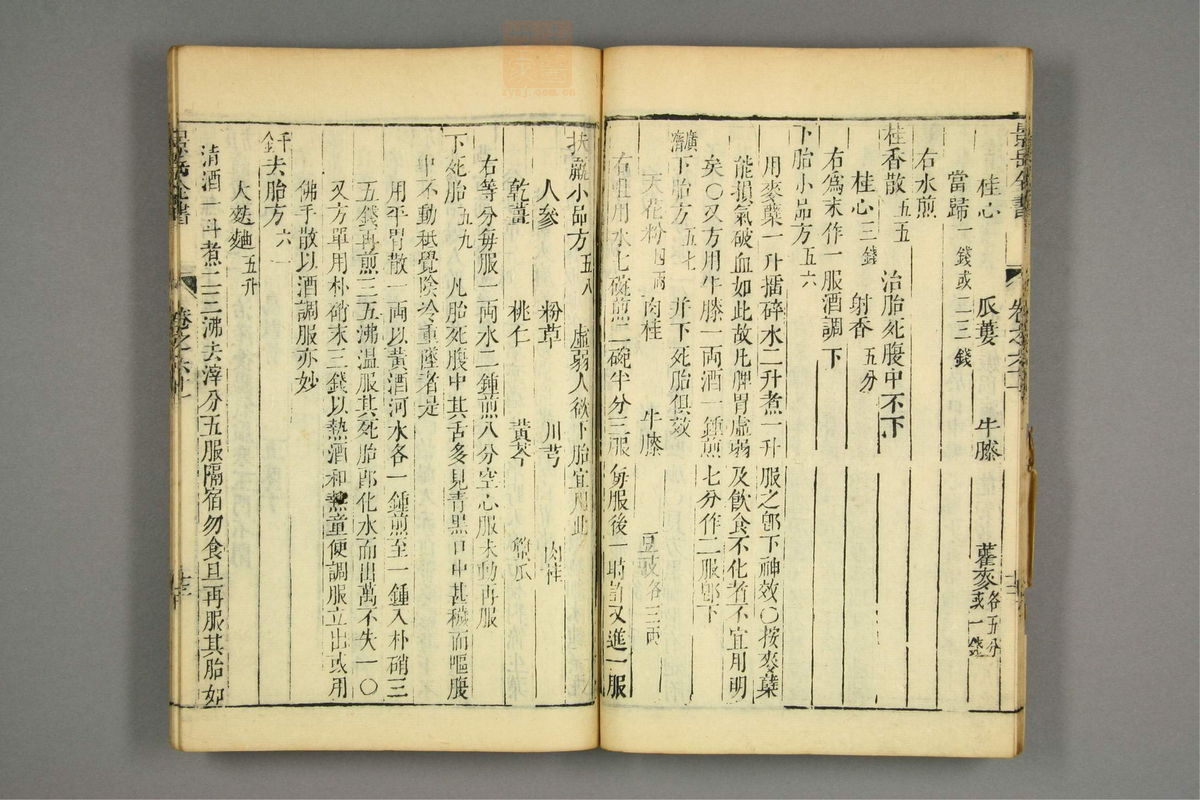 景岳全書
卷之六十一
桂心 瓜蔞 牛膝 藿麥各五分或一錢
當歸一錢或二三錢
右水煎
桂香散五五 治胎死腹中不下
桂心三錢 射香五分
右為末作一服酒調下
下胎小品方五六
用麥蘗一升擂碎水二升煮一升服之卽下神效○按麥蘗
能損氣破血如此故凡脾胃虛弱及飲食不化者不宜用明
矣○又方用牛膝一兩酒一鍾煎七分作二服卽下
廣濟下胎方五七 并下死胎俱效
天花粉四兩 肉桂 牛膝 豆豉各三兩
右咀用水七碗煎二碗半分三服每服後一時許又進一服
扶羸小品方五八 虛弱人欲下胎宜用此
人參 粉草 川芎 肉桂
乾薑 桃仁 黃芩 蟹爪
右等分每服一兩水二鍾煎八分空心服未動再服
下死胎五九 凡胎死腹中其舌多見青黑口中甚穢而嘔腹
中不動秪覺陰冷重墜者是
用平胃散一兩以黃酒河水各一鍾煎至一鍾入朴硝三
五錢再煎三五沸溫服其死胎卽化水而出萬不失一○
又方單用朴硝末三錢以熱酒和熱童便調服立出或用
佛手散以酒調服亦妙
千金去胎方六一
大麩麯五升
清酒一斗煮二三沸去滓分五服隔宿勿食旦再服其胎如
景岳全書
卷之六十一